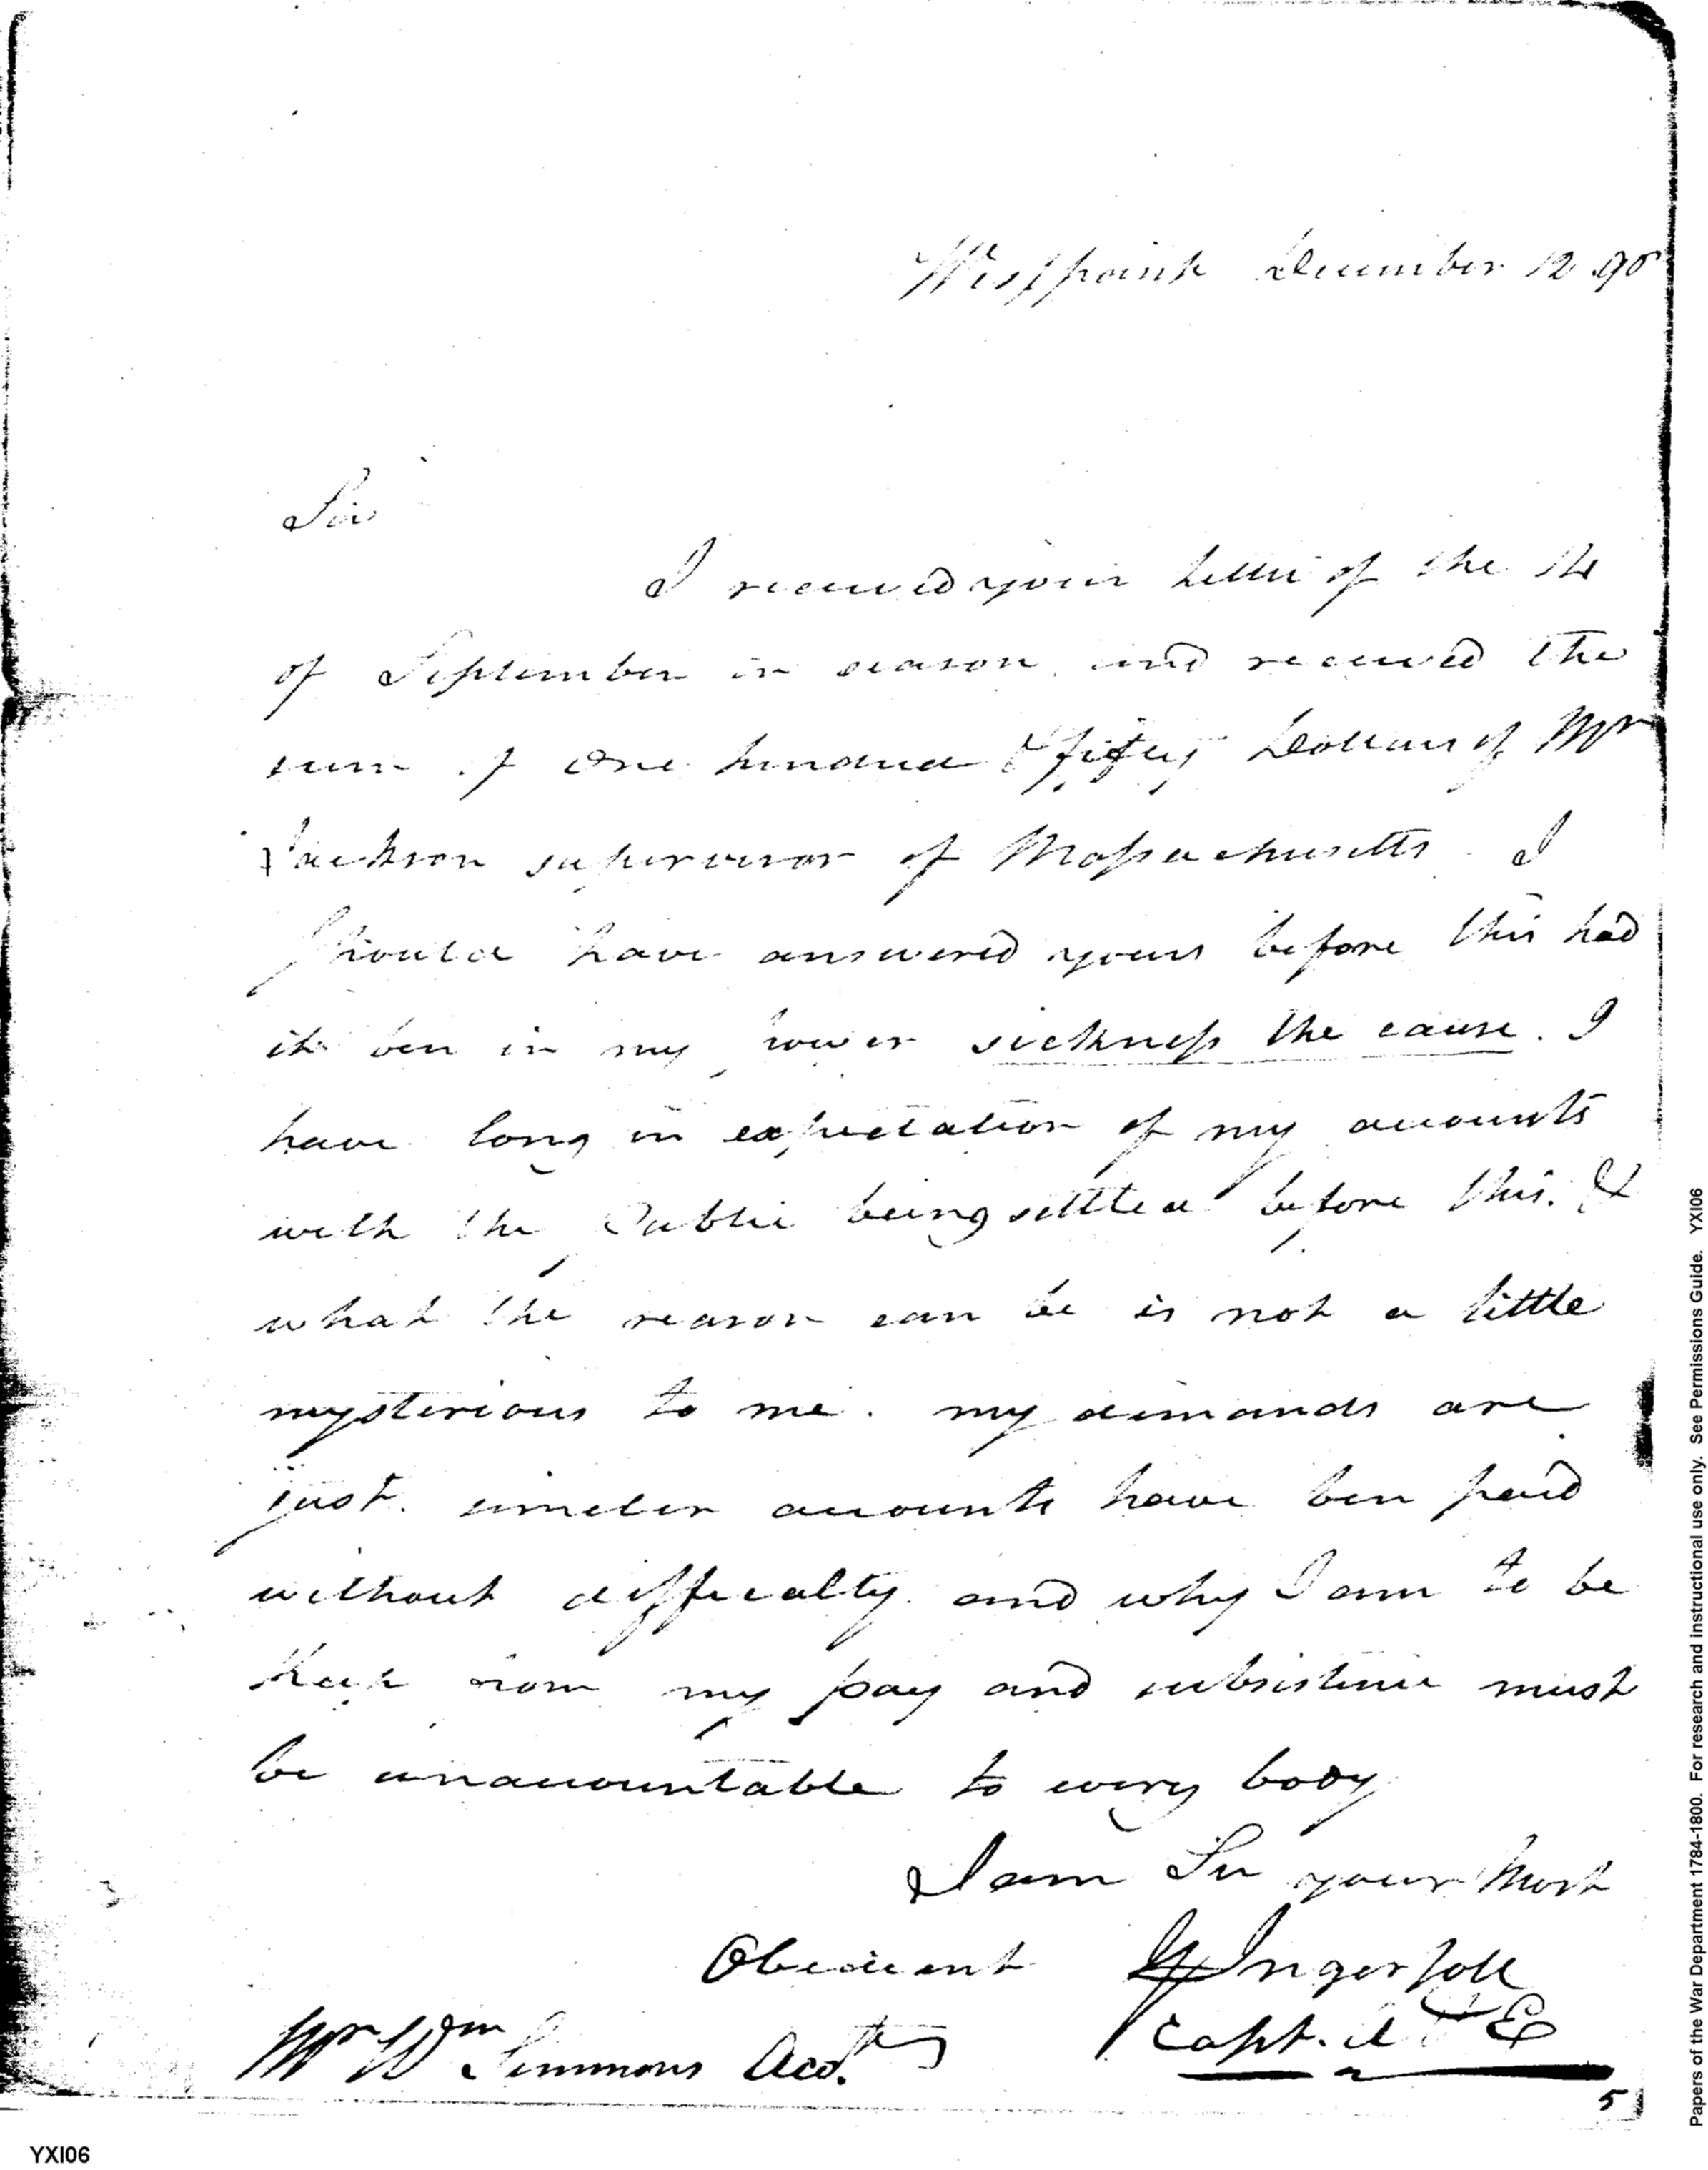 Westpoint December 12 98
Sir
I received your letter of the 14
of September in season and received the
sum of One hundred & fifty Dollars of Mr
Jackson supervisor of Massachusetts. I
Should have answered yours before this had
it ben in my power sickness the cause. I
have long in expectation of my accounts
with the Public being settled before this. &
what the reason can be is not a little
mysterious to me. my demands are
just. simeler accounts have ben paid
without difficalty. and why I am to be
kept from my pay and subsistence must
be unaccountable to every body
I am Sir your Most
Obedient G Ingersoll
Mr Wm Simmons Acct. Capt. A & E
5
Papers of the War Department 1784-1800. For research and instructional use only. See Permissions Guide. YXI06
YXI06